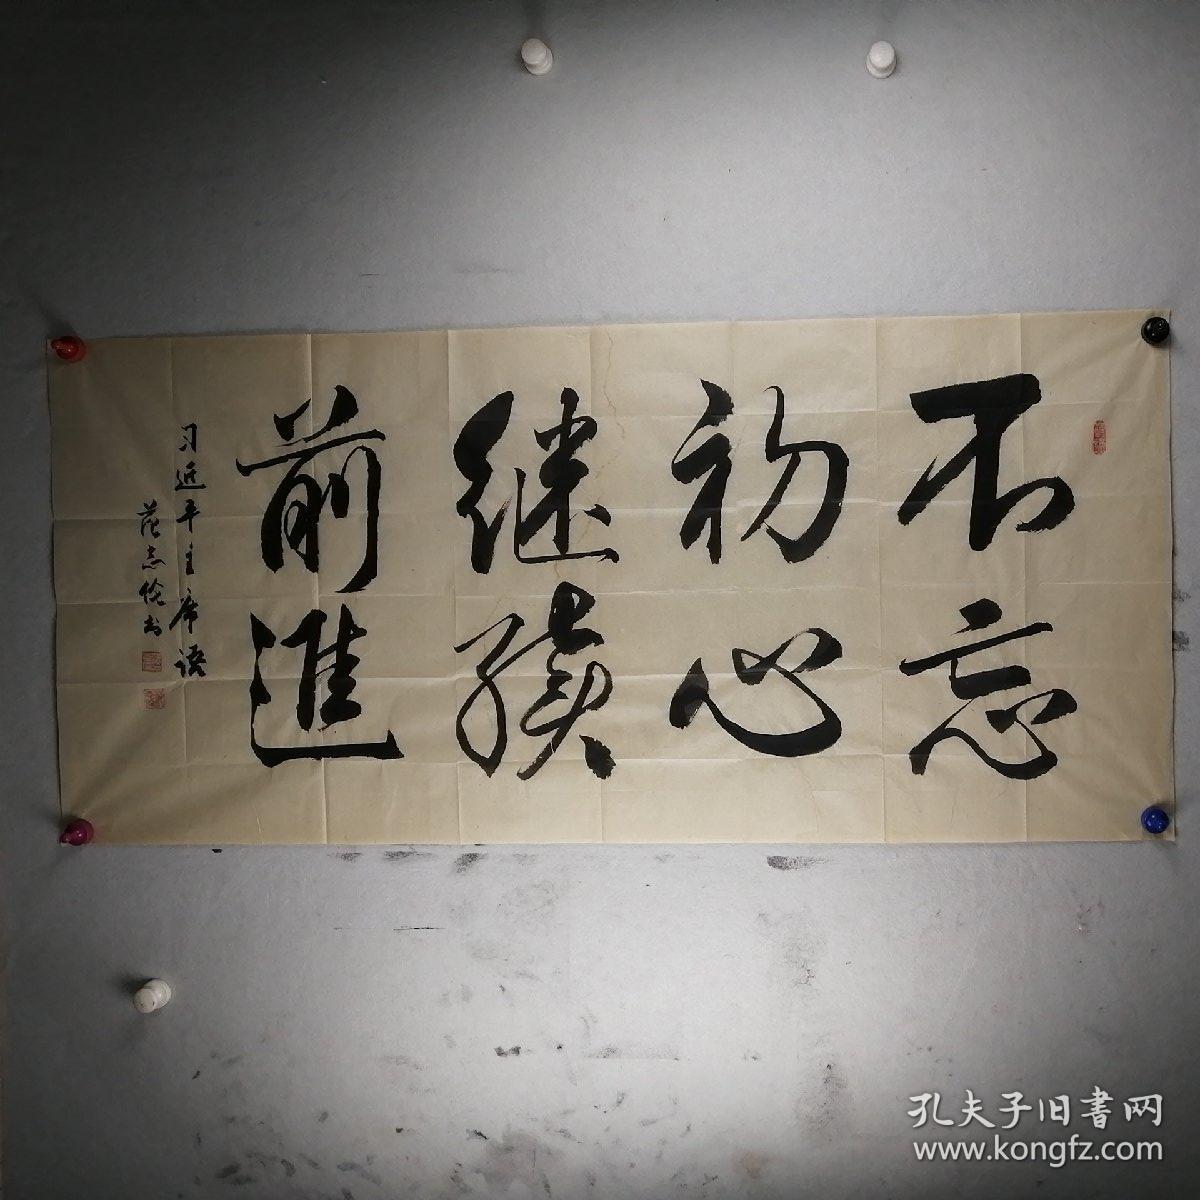 不忘
初心
继续
前進
习近平主席语
范志伦书
孔夫子旧書网
www.kongfz.com